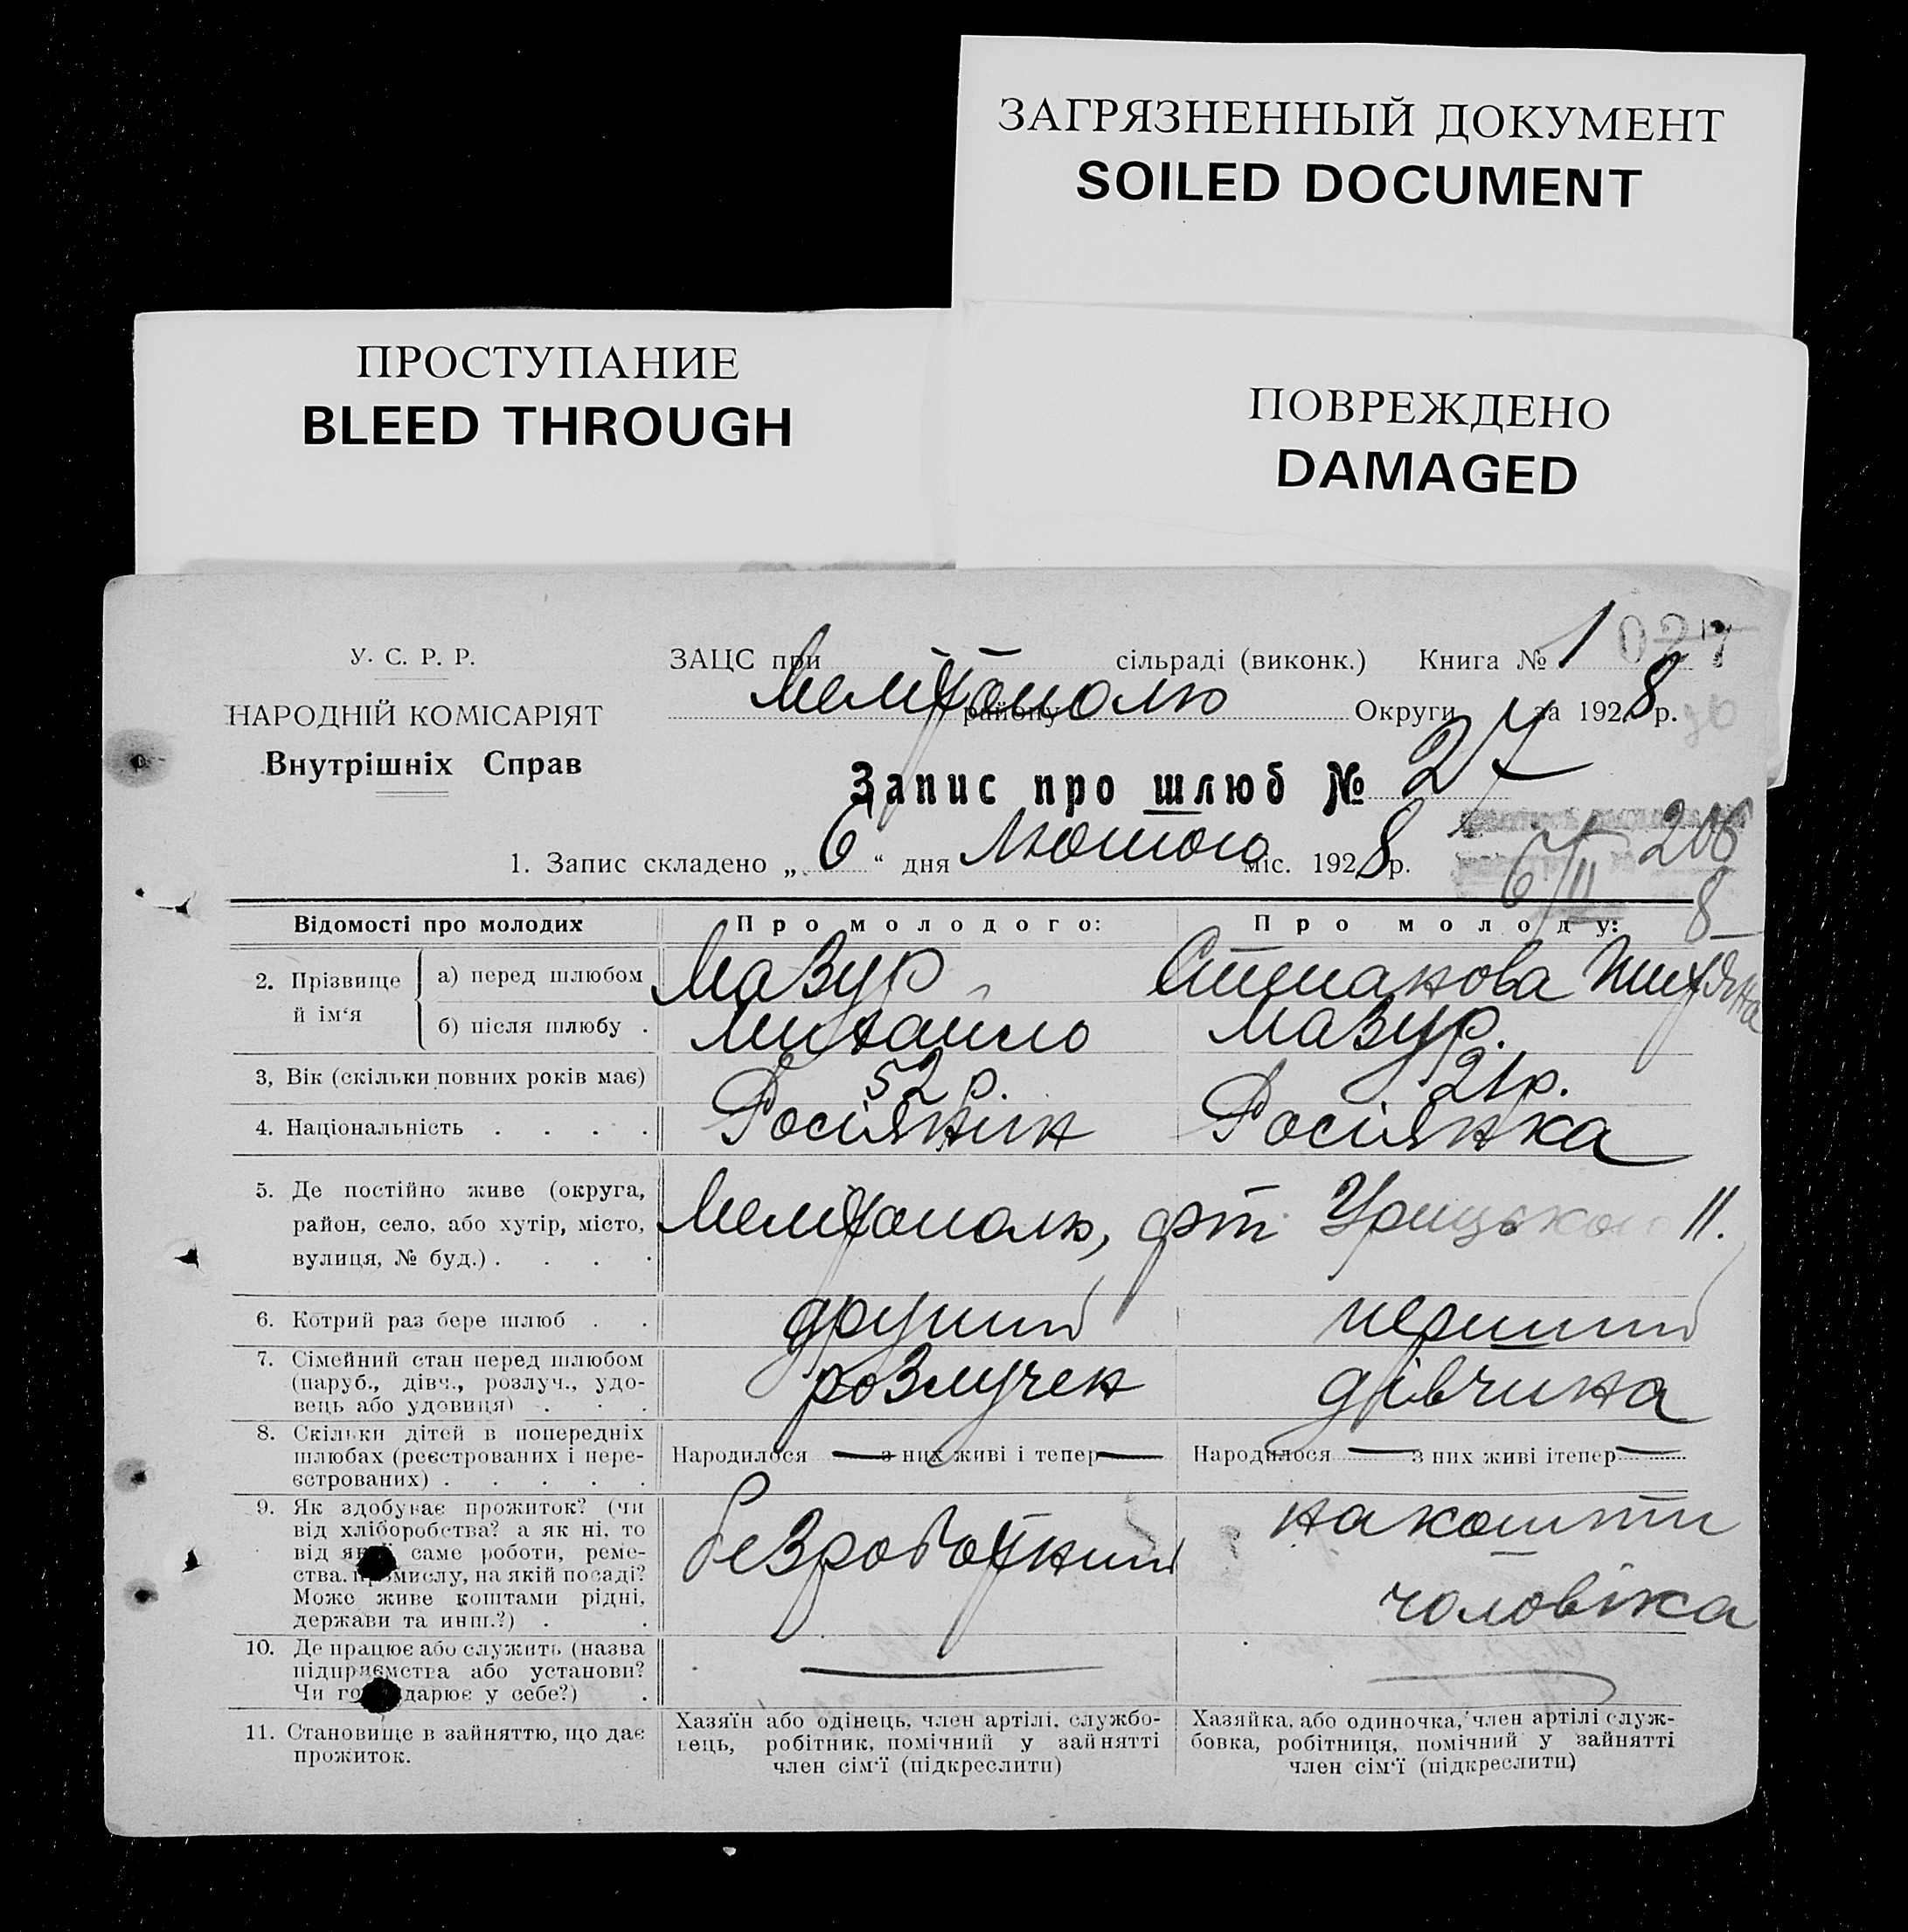 ЗАГРЯЗНЕННЫЙ ДОКУМЕНТ
SOILED DOCUMENT
ПРОСТУПАНИЕ
BLEED THROUGH
ПОВРЕЖДЕНО
DAMAGED
У. С. Р. Р.
НАРОДНІЙ КОМІСАРІЯТ
Внутрішніх Справ
ЗАЦС при сільраді (виконк.) Книга № 1
Мелітополю району Округи за 1928 р.
Запис про шлюб № 27
1. Запис складено „ 6 “ дня Лютого міс. 1928 р.
6/II 8
Відомості про молодих Про молодого: Про молоду:
2. Прізвище й ім‘я
а) перед шлюбом Мазур Степанова
б) після шлюбу . Михаило Мазур.
3, Вік (скільки повних років має) 52 р. 21 р.
4. Національність . . . . Росіянин Росіянка
5. Де постійно живе (округа,
район, село, або хутір, місто,
вулиця, № буд.) . . . .
Мелітополь, Урицького 11.
6. Котрий раз бере шлюб . . другий перший
7. Сімейний стан перед шлюбом
(паруб., дівч., розлуч., удо-
вець або удовиця) . . .
розлучен дівчина
8. Скільки дітей в попередніх
шлюбах (реєстрованих і нере-
єстрованих) . . . . .
Народилося — з них живі і тепер — Народилося — з них живі ітепер —
9. Як здобуває прожиток? (чи
від хліборобства? а як ні, то
від якої саме роботи, реме-
ства, промислу, на якій посаді?
Може живе коштами рідні,
держави та инш.?) . .
безроботний на кошти
чоловіка
10. Де працює або служить (назва
підприємства або установи?
Чи господарює у себе?) .
11. Становище в зайняттю, що дає
прожиток.
Хазяїн або одінець, член артілі, службо-
вець, робітник, помічний у зайнятті
член сім‘ї (підкреслити)
Хазяйка, або одиночка, член артілі служ-
бовка, робітниця, помічний у зайнятті
член сім‘ї (підкреслити)